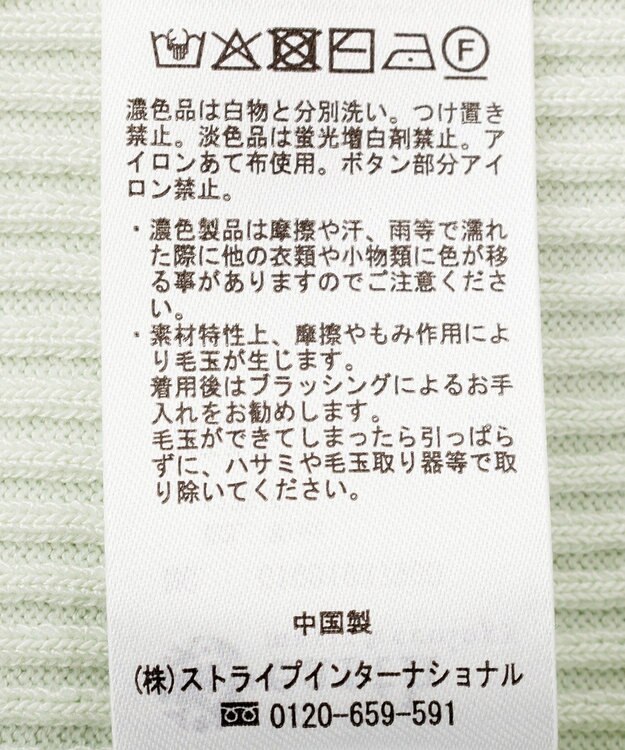 F
濃色品は白物と分別洗い。つけ置き
禁止。淡色品は蛍光増白剤禁止。ア
イロンあて布使用。ボタン部分アイ
ロン禁止。
・濃色製品は摩擦や汗、雨等で濡れ
た際に他の衣類や小物類に色が移
る事がありますのでご注意くださ
い。
・素材特性上、摩擦やもみ作用によ
り毛玉が生じます。
着用後はブラッシングによるお手
入れをお勧めします。
毛玉ができてしまったら引っぱら
ずに、ハサミや毛玉取り器等で取
り除いてください。
中国製
(株)ストライプインターナショナル
0120-659-591